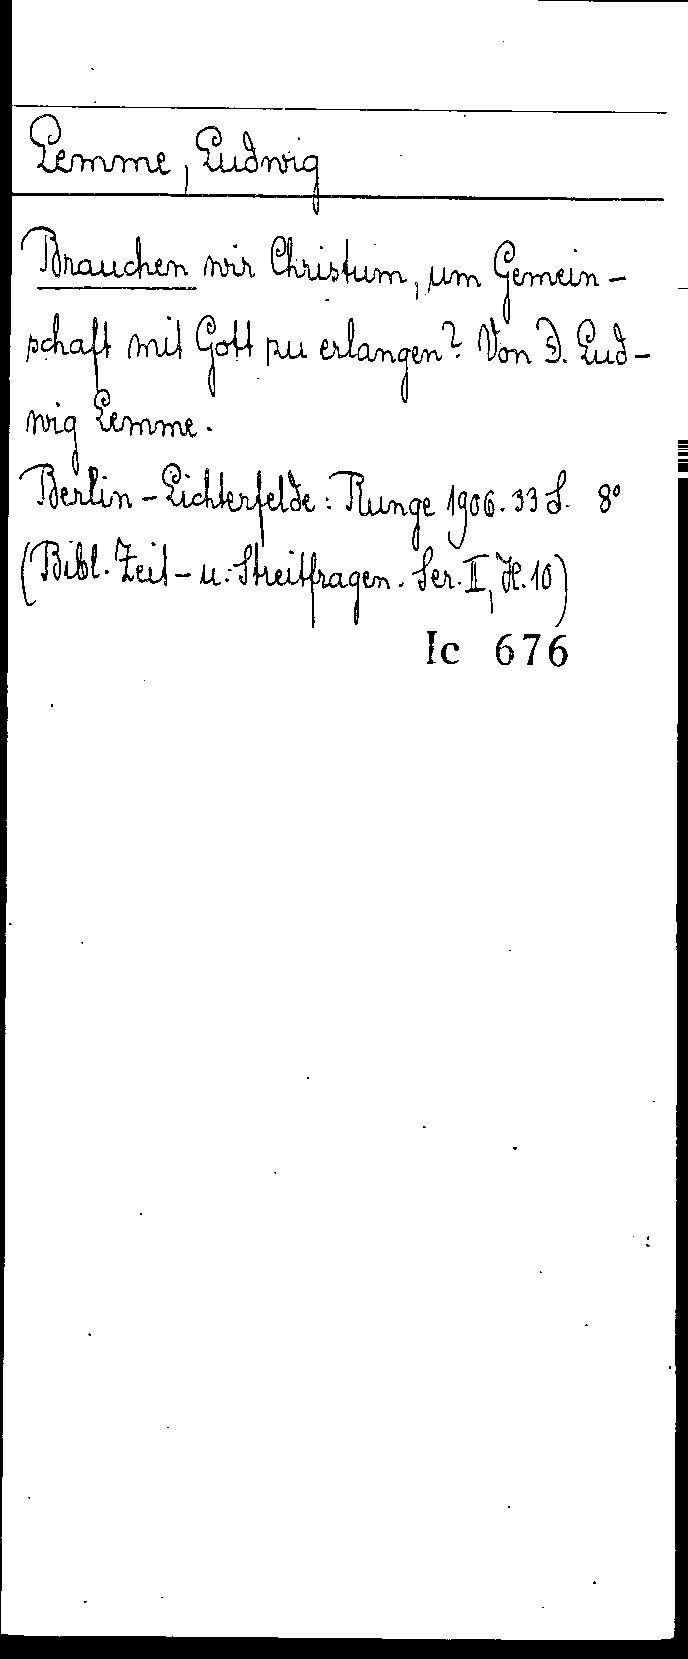 Lemme, Ludwig
Brauchen wir Christum, um Gemein-
schaft mit Gott zu erlangen? Von D. Lud-
wig Lemme.
Berlin-Lichterfelde: Runge 1906. 33 S. 8°
(Bibl. Zeit- u. Streitfragen. Ser. II, H. 10)
Ic 676